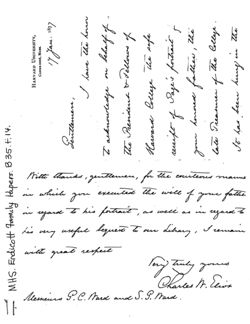 HARVARD UNIVERSITY,
CAMBRIDGE, MASS.
17 Jan. 1897
Gentlemen,
I have the honor
to acknowledge on behalf of
the President & Fellows of
Harvard College the safe
receipt of Page's portrait of
your honored father, the
late Treasurer of the College.
It has been hung in the
With thanks, gentlemen, for the courteous manner
in which you executed the will of your father
in regard to his portrait, as well as in regard to
his very useful legacy to our Library, I remain
with great respect
Very truly yours
Charles W. Eliot
Messieurs G. C. Ward and S. G. Ward.
MHS. Endicott Family Papers. B35. F.14.